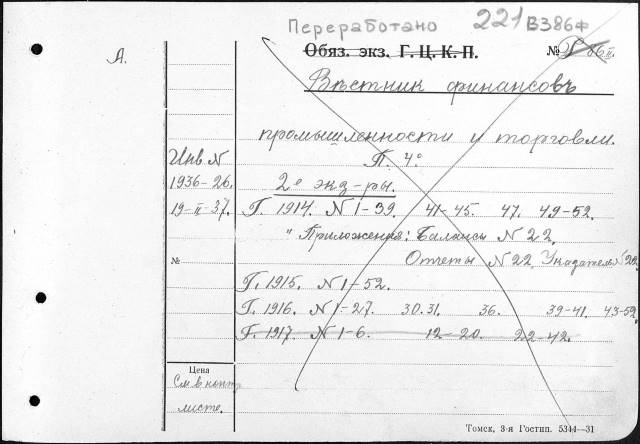 Переработано 221 В386ф
Обяз. экз. Г. Ц. К. П. №
А.
Вѣстник финансовъ
промышленности и торговли.
Инв. N П. 4°
1936-26. 2е экз-ры.
19-II-37. Г. 1914. N 1-39. 41-45. 47. 49-52.
" Приложения: Балансы N 22.
№ Отчеты N 22. Указатель N 22
Г. 1915. N 1-52.
Г. 1916. N 1-27. 30.31. 36. 39-41. 43-52.
Г. 1917. N 1-6. 12-20. 22-42.
Цена
См. в
листе.
Томск, 3-я Гостип. 5344—31